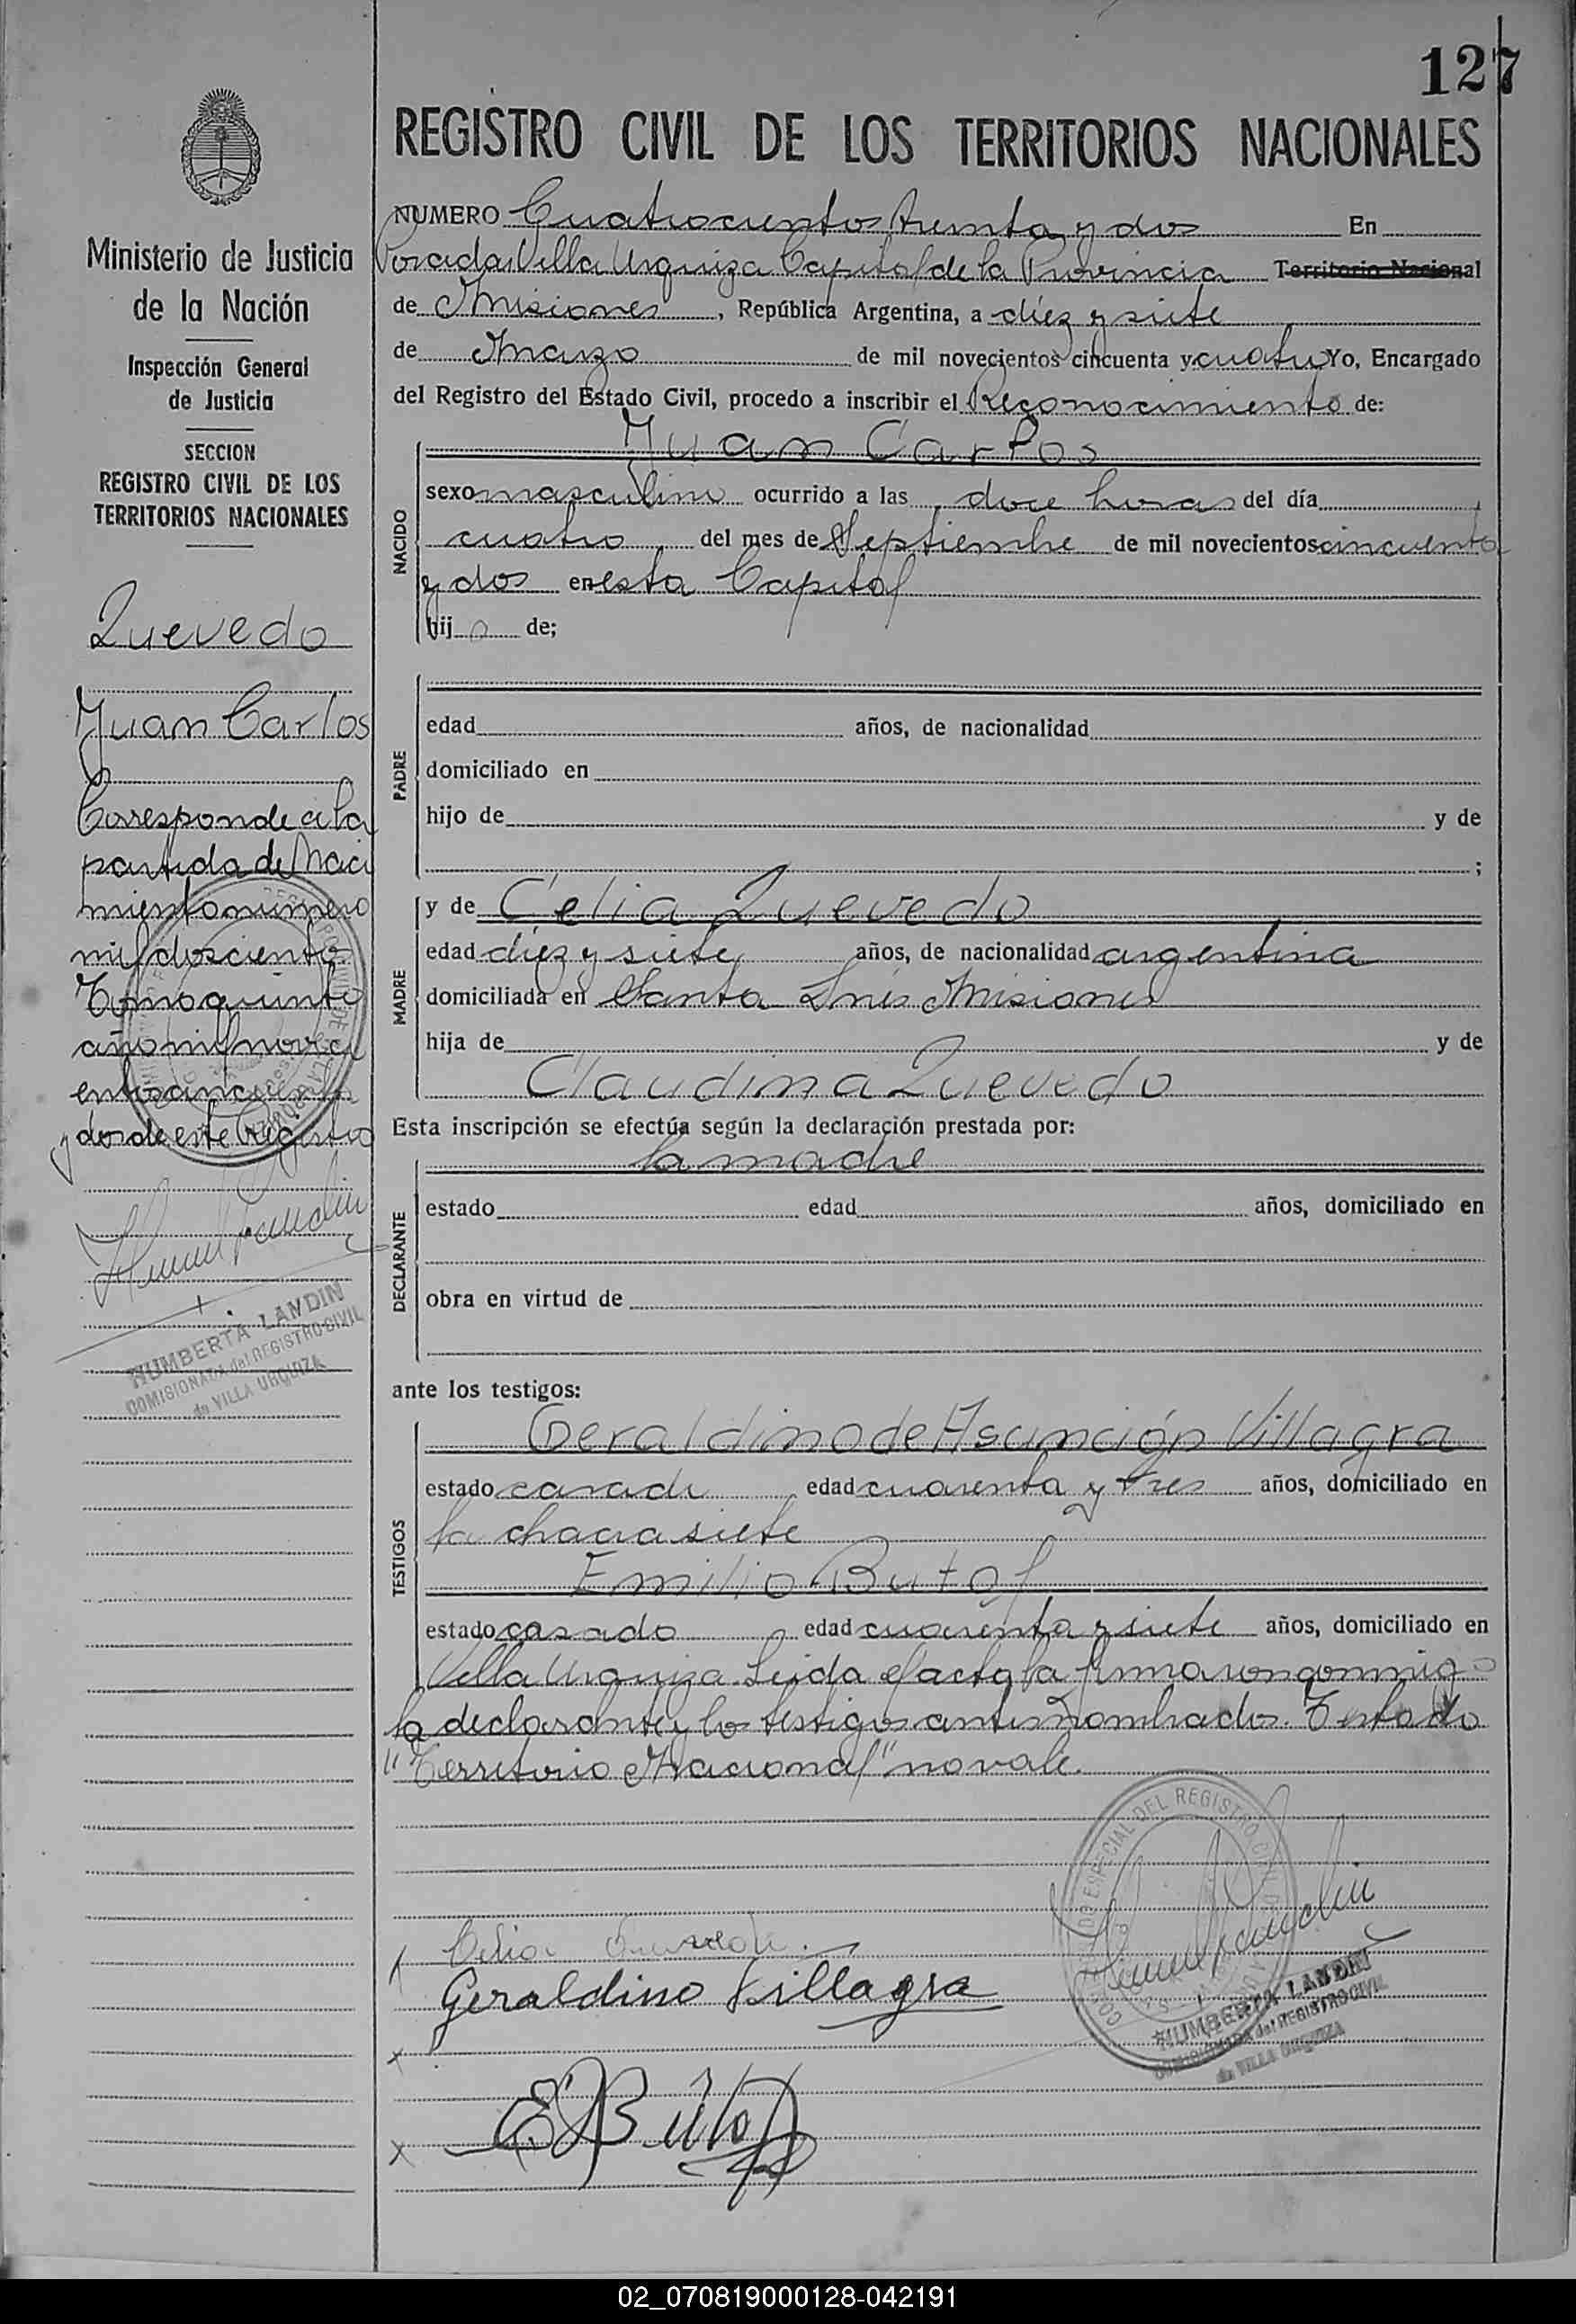 127
REGISTRO CIVIL DE LOS TERRITORIOS NACIONALES
NUMERO Cuatrocientos treinta y dos En
Posadas Villa Urquiza Capital de la Provincia Territorio Nacional
de Misiones, República Argentina, a diez y siete
de Marzo de mil novecientos cincuenta y cuatro Yo, Encargado
del Registro del Estado Civil, procedo a inscribir el Reconocimiento de:
NACIDO
Juan Carlos
sexo masculino ocurrido a las doce horas del día
cuatro del mes de Septiembre de mil novecientos cincuenta
y dos en esta Capital
hijo de;
PADRE
edad años, de nacionalidad
domiciliado en
hijo de y de
;
MADRE
y de Celia Quevedo
edad diez y siete años, de nacionalidad argentina
domiciliada en Santa Inés Misiones
hija de y de
Claudina Quevedo
Esta inscripción se efectúa según la declaración prestada por:
la madre
DECLARANTE
estado edad años, domiciliado en
obra en virtud de
ante los testigos:
TESTIGOS
Geraldino de Asunción Villagra
estado casado edad cuarenta y tres años, domiciliado en
la chacra siete
Emilio Butof
estado casado edad cuarenta y siete años, domiciliado en
Villa Urquiza. Leida el acta la firmaron conmigo
la declarante y los testigos antes nombrados. Testado
"Territorio Nacional" no vale.
Celia Quevedo
Geraldino Villagra
E Butof
HUMBERTA LANDIN
COMISIONADA del REGISTRO CIVIL
de VILLA URQUIZA
Ministerio de Justicia
de la Nación
Inspección General
de Justicia
SECCION
REGISTRO CIVIL DE LOS
TERRITORIOS NACIONALES
Quevedo
Juan Carlos
Corresponde a la
partida de Naci
miento numero
mil doscientos
Tomo quinto
año mil novecí
entos cincuenta
y dos de este Registro
HUMBERTA LANDIN
COMISIONADA del REGISTRO CIVIL
de VILLA URQUIZA
02_070819000128-042191